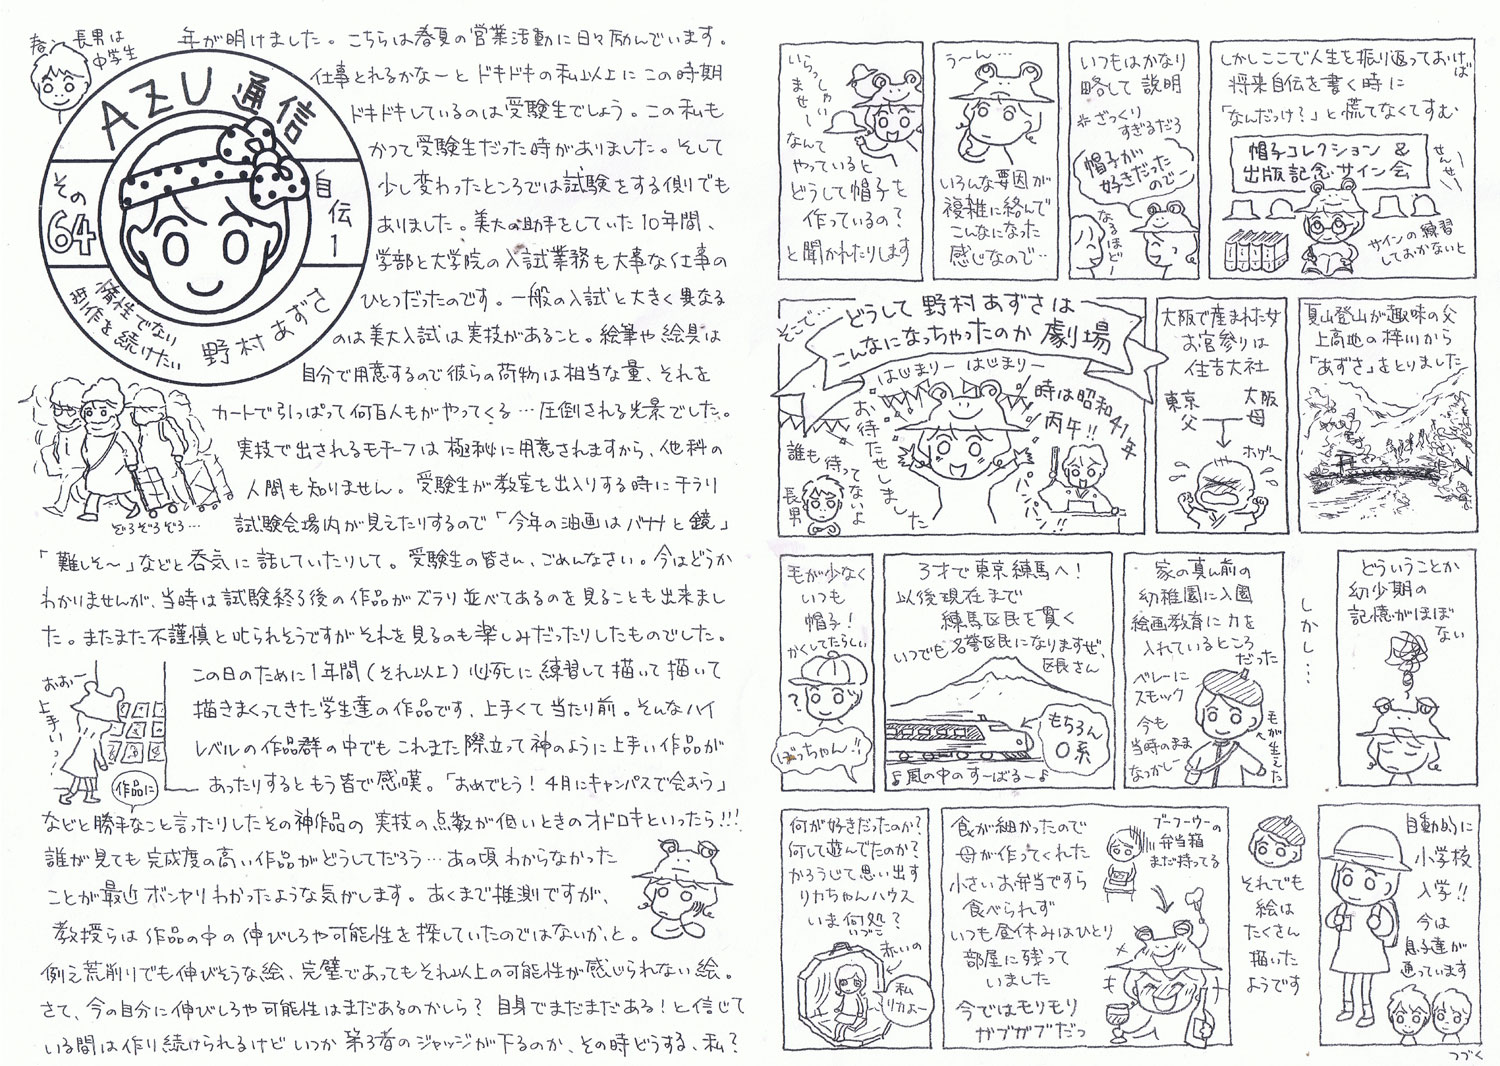 春、長男は
中学生
AZU通信
その
64
自伝
1
惰性でない
野村あずさ
年が明けました。こちらは春夏の営業活動に日々励んでいます。
仕事とれるかなーとドキドキの私以上にこの時期
ドキドキしているのは受験生でしょう。この私も
かつて受験生だった時がありました。そして
少し変わったところでは試験をする側でも
ありました。美大の助手をしていた10年間、
学部と大学院の入試業務も大事な仕事の
ひとつだったのです。一般の入試と大きく異なる
のは美大入試は実技があること。絵筆や絵具は
自分で用意するので彼らの荷物は相当な量、それを
カートで引っぱって何百人もがやってくる…圧倒される光景でした。
実技で出されるモチーフは極秘に用意されますから、他科の
人間も知りません。受験生が教室を出入りする時にチラリ
試験会場内が見えたりするので「今年の油画はバナナと鏡」
ぞろぞろぞろ…
「難しそ〜」などと呑気に話していたりして。受験生の皆さん、ごめんなさい。今はどうか
わかりませんが、当時は試験終了後の作品がズラリ並べてあるのを見ることも出来まし
た。またまた不謹慎と叱られそうですがそれを見るのも楽しみだったりしたものでした。
この日のために1年間(それ以上)必死に練習して描いて描いて
描きまくってきた学生達の作品です、上手くて当たり前。そんなハイ
レベルの作品群の中でもこれまた際立って神のように上手い作品が
あったりするともう皆で感嘆。「おめでとう！4月にキャンパスで会おう」
おおー
上手いっ
作品に
などと勝手なこと言ったりしたその神作品の実技の点数が低いときのオドロキといったら!!!
誰が見ても完成度の高い作品がどうしてだろう…あの頃わからなかった
ことが最近ボンヤリわかったような気がします。あくまで推測ですが、
教授らは作品の中の伸びしろや可能性を探していたのではないか、と。
例え荒削りでも伸びそうな絵、完璧であってもそれ以上の可能性が感じられない絵。
さて、今の自分に伸びしろや可能性はまだあるのかしら？自身でまだまだある！と信じて
いる間は作り続けられるけどいつか第3者のジャッジが下るのか、その時どうする、私？
いらっしゃい
ませー
なんて
やっていると
どうして帽子を
作っているの？
と聞かれたりします
う〜ん…
いろんな要因が
複雑に絡んで
こんなになった
感じなので…
いつもはかなり
略して説明
※ざっくり
すぎるだろ
帽子が
好きだった
のでー
なるほどー
しかしここで人生を振り返っておけば
将来自伝を書く時に
「なんだっけ？」と慌てなくてすむ
帽子コレクション＆
出版記念サイン会
せんせー
サインの練習
しておかないと
そこで…
どうして野村あずさは
こんなになっちゃったのか劇場
はじまりー はじまりー
お待たせしました
時は昭和41年
丙午!!
誰も待ってないよ
長男
パンパン
大阪で産まれた女
お宮参りは
住吉大社
東京
父
大阪
母
ホゲ〜
夏山登山が趣味の父
上高地の梓川から
「あずさ」をとりました
毛が少なく
いつも
帽子！
かくしてたらしい
?
ぼっちゃん!!
3才で東京練馬へ！
以後現在まで
練馬区民を貫く
いつでも名誉区民になりますぜ、
区長さん
もちろん
0系
♪風の中のすーばるー♪
家の真ん前の
幼稚園に入園
絵画教育に力を
入れているところ
だった
ベレーに
スモック
今も
当時のまま
なつかしー
毛が生えた
しかし…
どういうことか
幼少期の
記憶がほぼ
ない
何が好きだったのか？
何して遊んでたのか？
かろうじて思い出す
リカちゃんハウス
いま何処？
いづこ
赤いの
私
リカよー
食が細かったので
母が作ってくれた
小さいお弁当ですら
食べられず
いつも昼休みはひとり
部屋に残って
いました
今ではモリモリ
ガブガブだっ
ブーフーウーの
弁当箱
まだ持ってる
それでも
絵は
たくさん
描いた
ようです
自動的に
小学校
入学!!
今は
息子達が
通っています
つづく